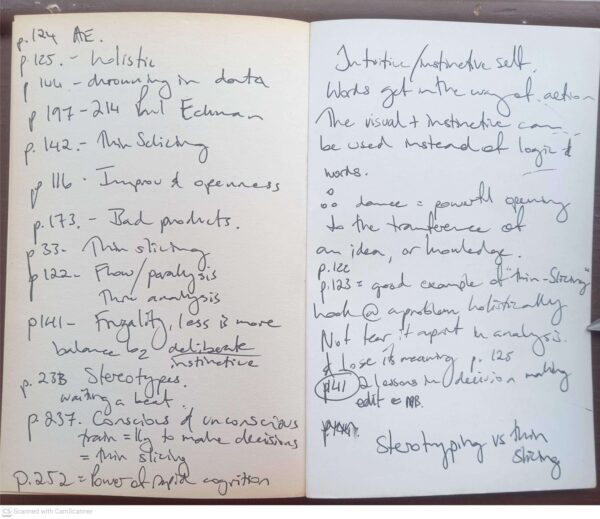 p.124 AE.
p.125. - holistic
p 144 - drowning in data
p 197 - 214 Paul Eckman
p. 142. - Thin Sclicing
p 116 - Improv & openness
p. 173. - Bad products.
p 33 - Thin slicing
p 122 - Flow / paralysis
Thru analysis
p 141 - Frugality, less is more
balance b2 deliberate
instinctive
p. 233 Stereotypes.
waiting a beat.
p. 237. Conscious & unconscious
train = lly to make decisions
= thin slicing
p. 252 = Power of rapid cognition
Intuitive/instinctive self.
Words get in the way of action
The visual + instinctive can
be used instead of logic &
words.
∴ dance = powerful opening
to the transference of
an idea, or knowledge.
p. 122
p. 123 = good example of "thin-Slicing"
Look @ a problem holistically
Not tear it apart in analysis.
& lose its meaning p. 125
p141 2 lessons in decision making
edit = NB.
Sterotyping vs thin
slicing
CS Scanned with CamScanner